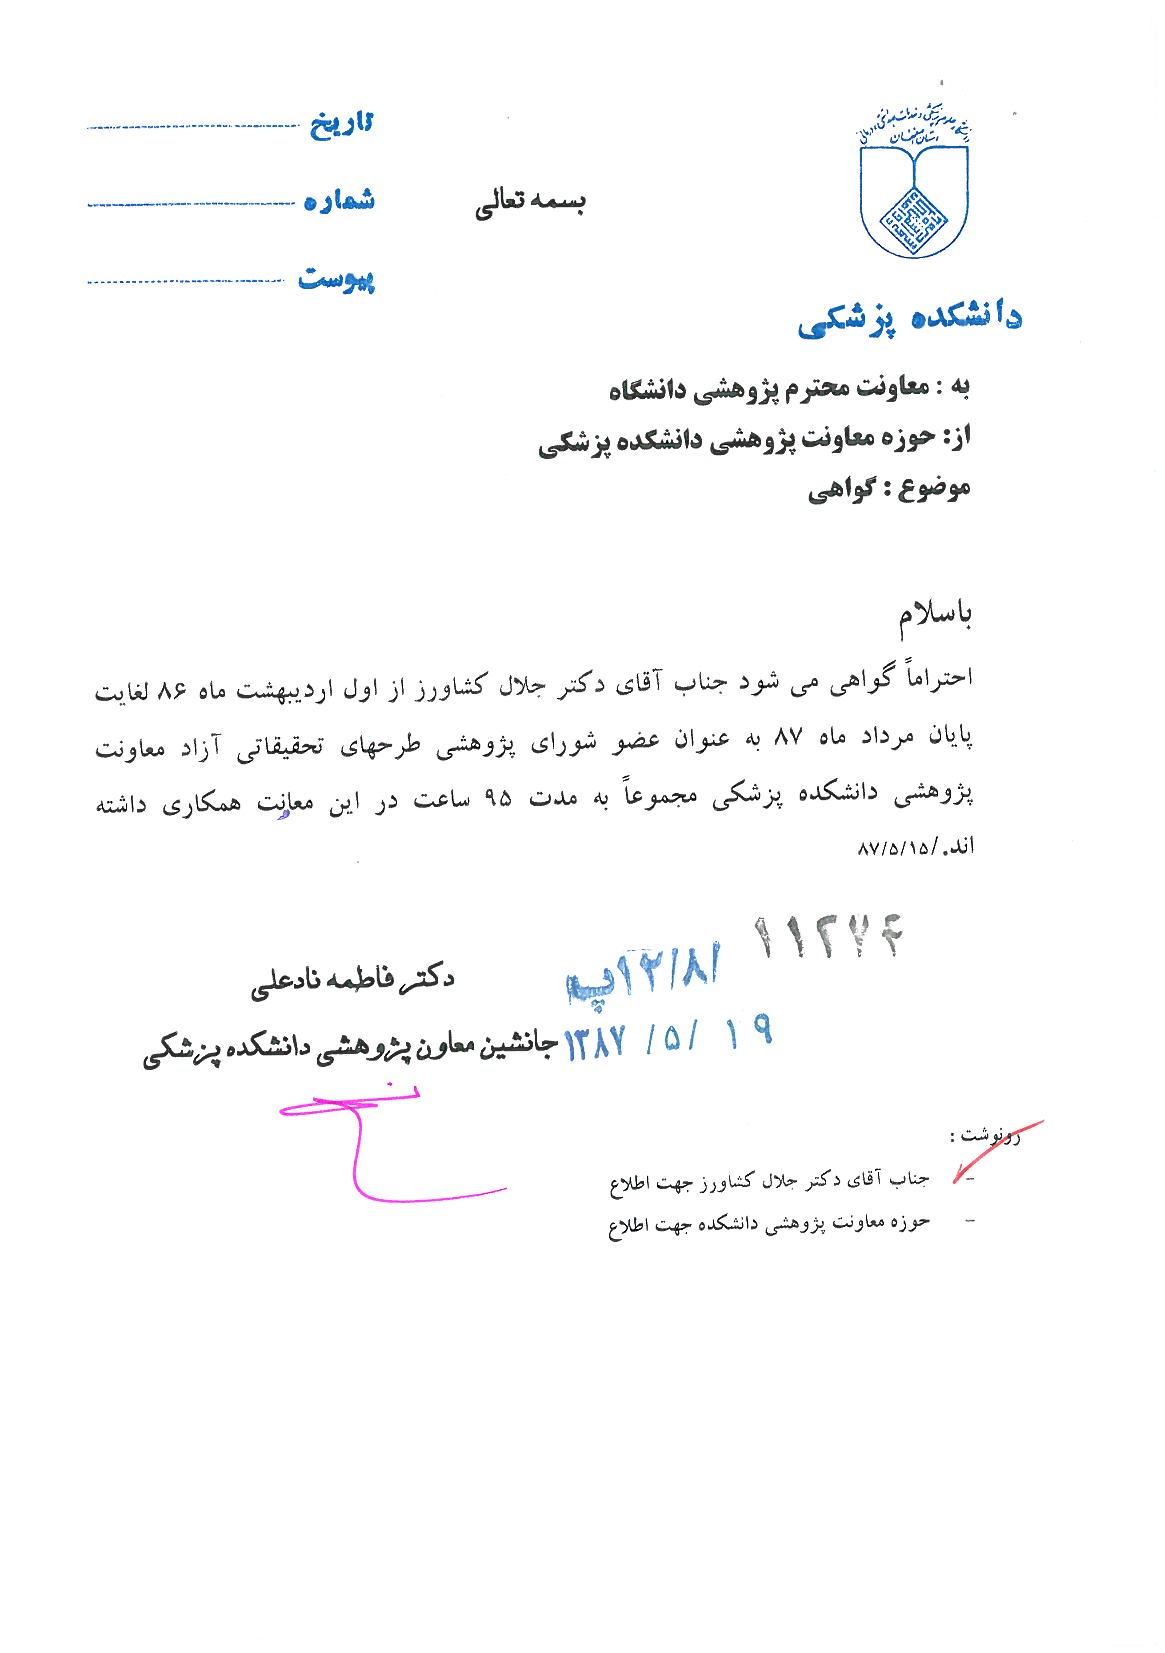 دانشگاه علوم پزشکی و خدمات بهداشتی، درمانی
استان اصفهان
تاریخ
بسمه تعالی
شماره
پیوست
دانشکده پزشکی
به : معاونت محترم پژوهشی دانشگاه
از: حوزه معاونت پژوهشی دانشکده پزشکی
موضوع : گواهی
باسلام
احتراماً گواهی می شود جناب آقای دکتر جلال کشاورز از اول اردیبهشت ماه ۸۶ لغایت
پایان مرداد ماه ۸۷ به عنوان عضو شورای پژوهشی طرحهای تحقیقاتی آزاد معاونت
پژوهشی دانشکده پزشکی مجموعاً به مدت ۹۵ ساعت در این معاونت همکاری داشته
اند./۸۷/۵/۱۵
۱۱۲۷۴
/۱۲/۸پ
دکتر فاطمه نادعلی
۱۳۸۷ /۵/ ۱۹
جانشین معاون پژوهشی دانشکده پزشکی
رونوشت :
- جناب آقای دکتر جلال کشاورز جهت اطلاع
- حوزه معاونت پژوهشی دانشکده جهت اطلاع